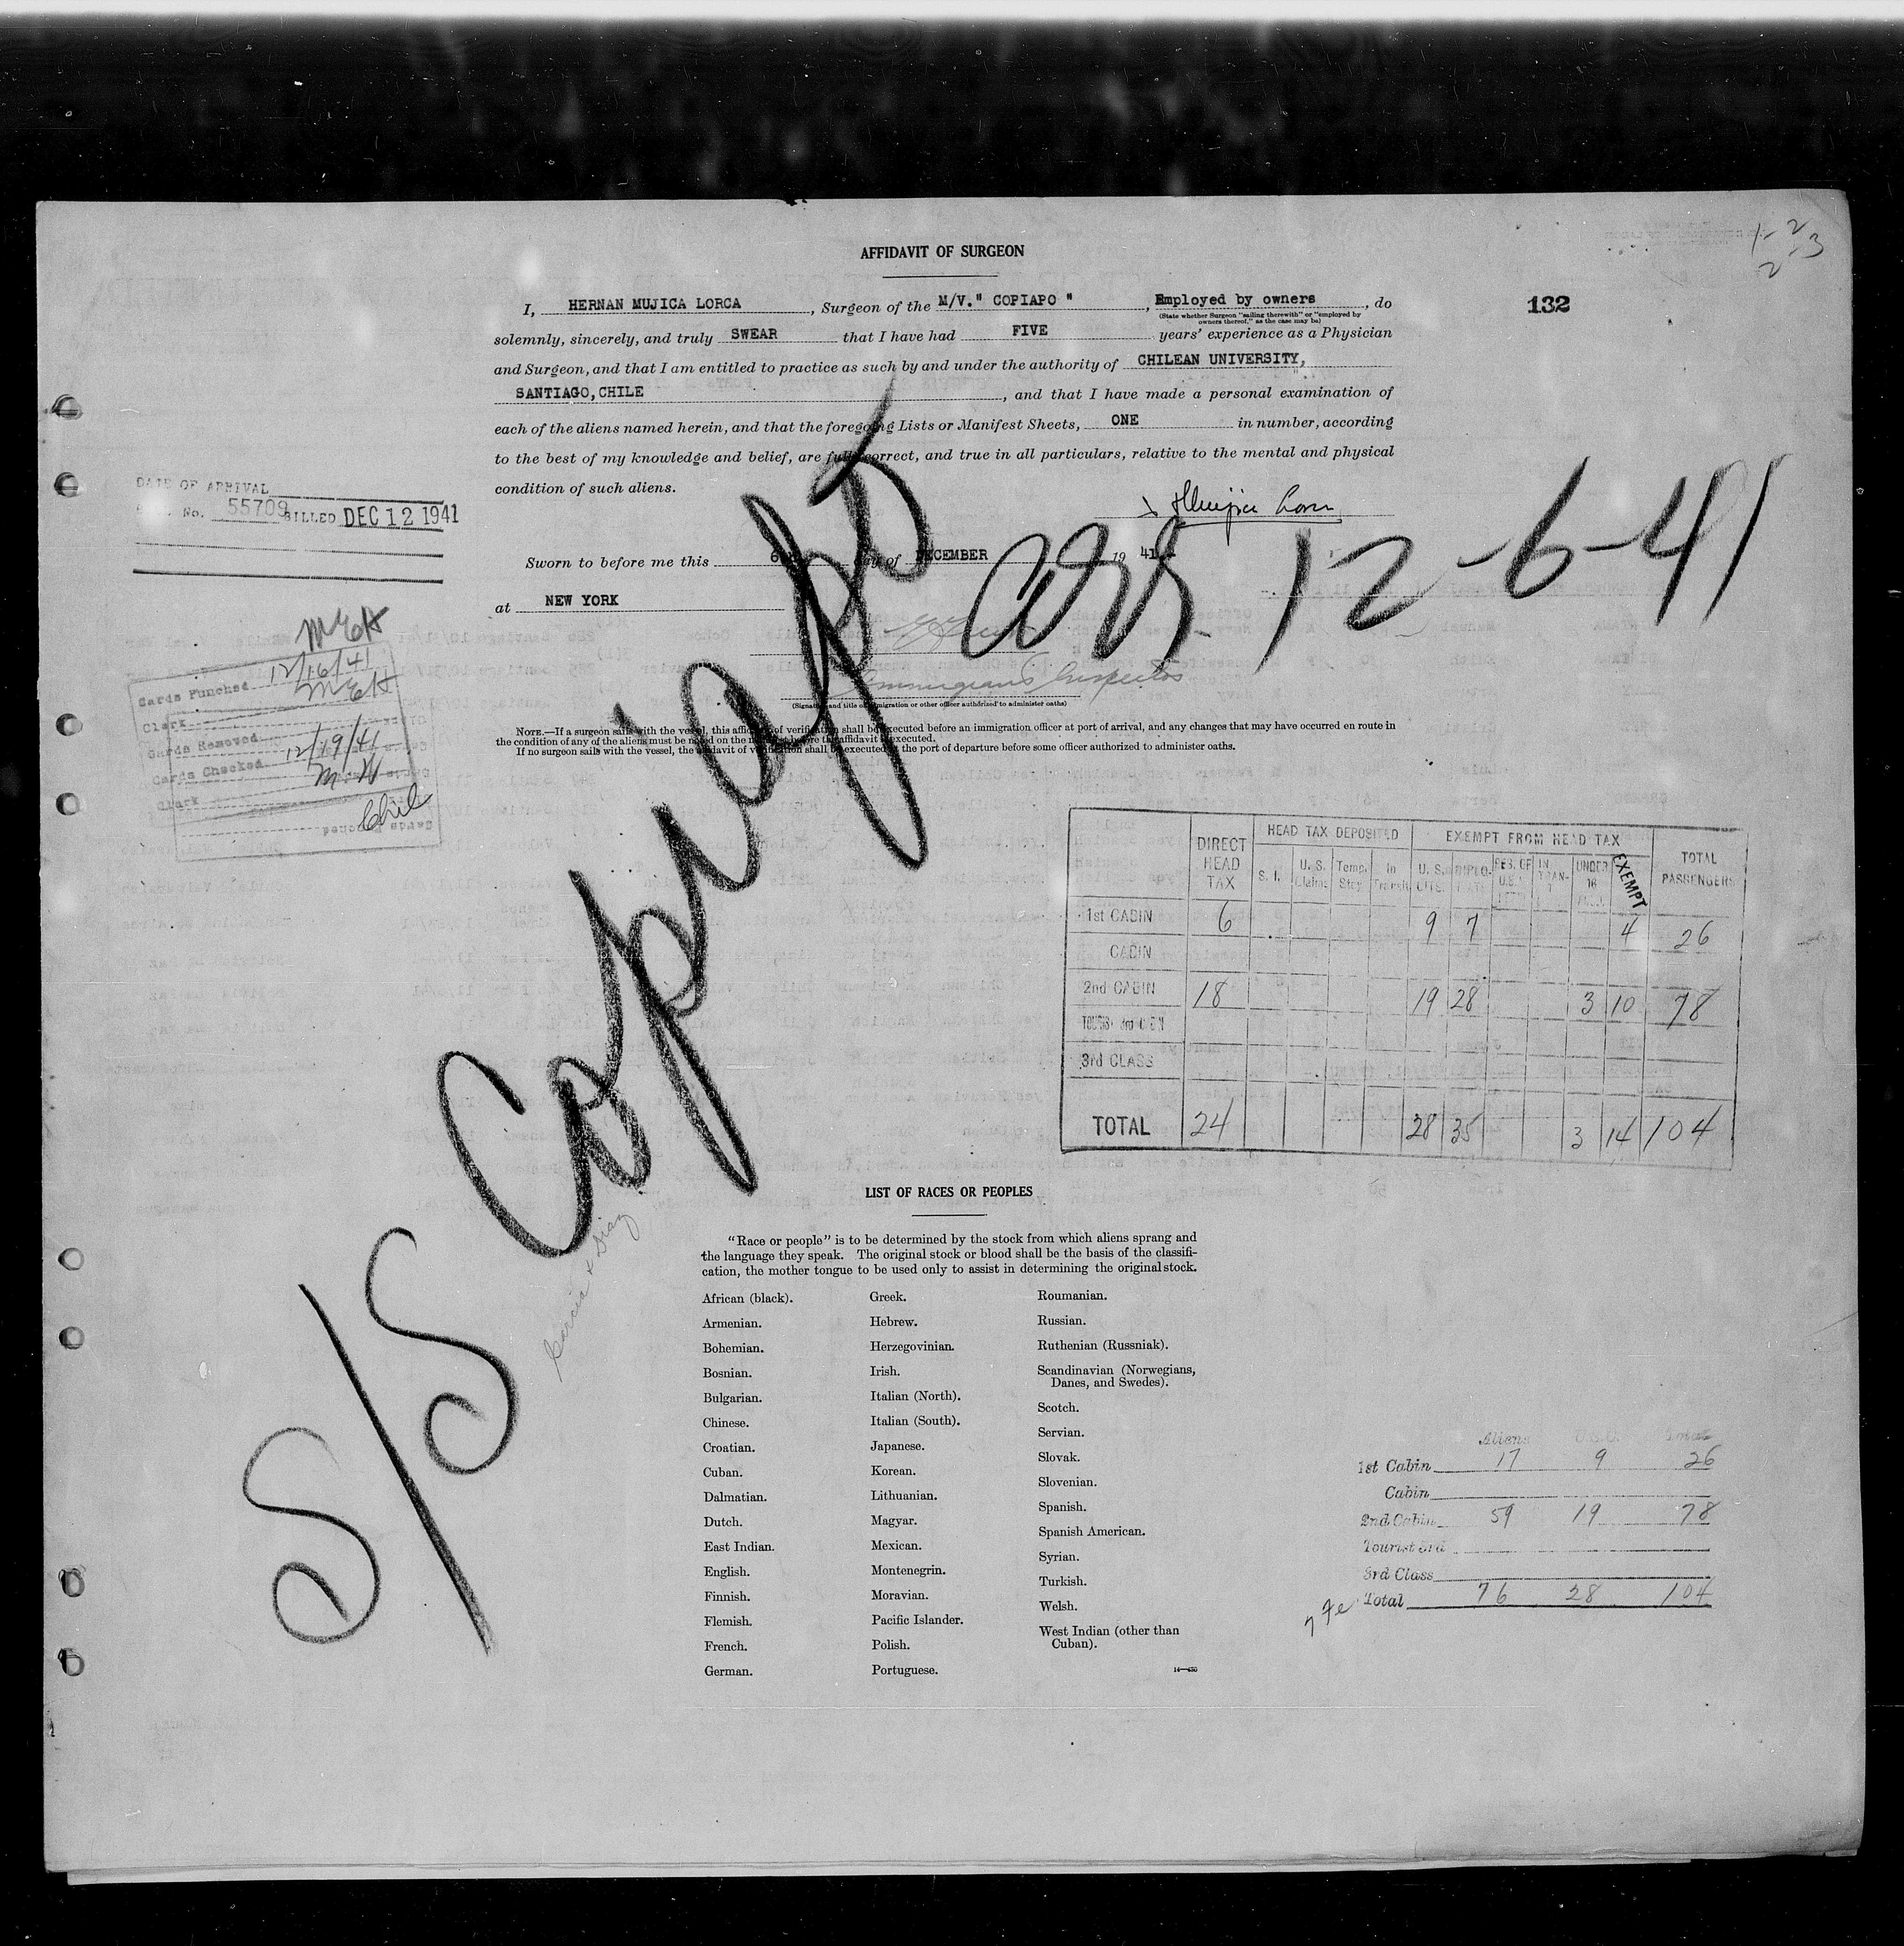 1-2
2-3
AFFIDAVIT OF SURGEON
132
I, HERNAN MUJICA LORCA, Surgeon of the M/V." COPIAPO ", Employed by owners, do
(State whether Surgeon "sailing therewith" or "employed by
owners thereof," as the case may be)
solemnly, sincerely, and truly SWEAR that I have had FIVE years' experience as a Physician
and Surgeon, and that I am entitled to practice as such by and under the authority of CHILEAN UNIVERSITY,
SANTIAGO, CHILE, and that I have made a personal examination of
each of the aliens named herein, and that the foregoing Lists or Manifest Sheets, ONE in number, according
to the best of my knowledge and belief, are full, correct, and true in all particulars, relative to the mental and physical
condition of such aliens.
HMujica Lorca
DATE OF ARRIVAL
No. 55709 BILLED DEC 12 1941
Sworn to before me this 6 day of DECEMBER 19 41
at NEW YORK
Immigrant Inspector
(Signature and title of immigration or other officer authorized to administer oaths)
S/S Copiapo
arr. 12-6-41
NOTE.—If a surgeon sails with the vessel, this affidavit of verification shall be executed before an immigration officer at port of arrival, and any changes that may have occurred en route in
the condition of any of the aliens must be noted on the manifest before the affidavit is executed.
If no surgeon sails with the vessel, the affidavit of verification shall be executed at the port of departure before some officer authorized to administer oaths.
MEH
Cards Punched 12/16/41
Clerk MEH
Cards Removed
Cards Checked 12/19/41
Clerk M.W
Chil
DIRECT HEAD TAX HEAD TAX DEPOSITED EXEMPT FROM HEAD TAX TOTAL PASSENGERS
S. I. U. S. Claims Temp. Stay In Transit U. S. CITS. DIPLO- RES. OF U.S. IN TRAN- UNDER 16 EXEMPT
1st CABIN 6 9 7 4 26
CABIN
2nd CABIN 18 19 28 3 10 78
TOURIST 3rd CABIN
3rd CLASS
TOTAL 24 28 35 3 14 104
LIST OF RACES OR PEOPLES
"Race or people" is to be determined by the stock from which aliens sprang and
the language they speak. The original stock or blood shall be the basis of the classifi-
cation, the mother tongue to be used only to assist in determining the original stock.
African (black).
Armenian.
Bohemian.
Bosnian.
Bulgarian.
Chinese.
Croatian.
Cuban.
Dalmatian.
Dutch.
East Indian.
English.
Finnish.
Flemish.
French.
German.
Greek.
Hebrew.
Herzegovinian.
Irish.
Italian (North).
Italian (South).
Japanese.
Korean.
Lithuanian.
Magyar.
Mexican.
Montenegrin.
Moravian.
Pacific Islander.
Polish.
Portuguese.
Roumanian.
Russian.
Ruthenian (Russniak).
Scandinavian (Norwegians,
Danes, and Swedes).
Scotch.
Servian.
Slovak.
Slovenian.
Spanish.
Spanish American.
Syrian.
Turkish.
Welsh.
West Indian (other than
Cuban).
14—430
Aliens U.S.C. Total
1st Cabin 17 9 26
Cabin
2nd Cabin 59 19 78
Tourist 3rd
3rd Class
Total 76 28 104